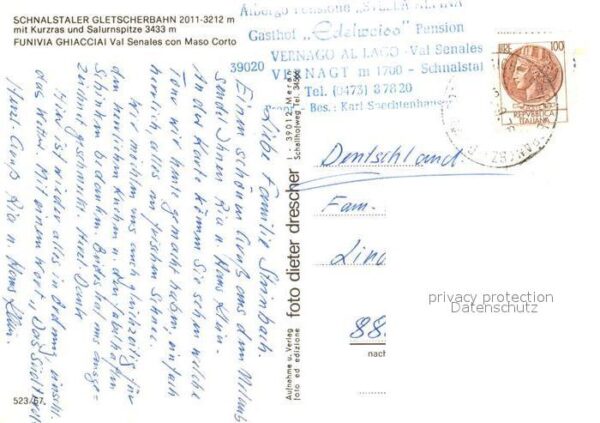 SCHNALSTALER GLETSCHERBAHN 2011-3212 m
mit Kurzras und Salurnspitze 3433 m
FUNIVIA GHIACCIAI Val Senales con Maso Corto
Albergo Pensione "STELLA ALPINA
Gasthof "Edelweiss" Pension
VERNAGO AL LAGO - Val Senales
39020 VERNAGT m 1700 - Schnalstal
Tel. (0473) 87820
Bes.: Karl Spechtenhaus
LIRE 100
REPVBBLICA
ITALIANA
Liebe Familie
Einen schönen Gruß aus dem Urlaub
senden Ihnen Ria u. Hans Klein.
An der Karte können Sie sehn welche
Tour wir heute gemacht haben, einfach
herrlich, alles im frischen Schnee.
Wir möchten uns auch gleichzeitig für
den herrlichen Kuchen u. den fabelhaften
Schinken bedanken. Beides hat uns ausge-
zeichnet geschmeckt. Herzl. Dank
Hier ist wieder alles in Ordnung, einschl.
das Wetter. Mit einem Wort
Herzl. Gruß Ria u. Hans Klein.
Aufnahme u. Verlag
foto ed edizione
foto dieter drescher
I - 39012 Meran
Schallhofweg Tel. 34566
Deutschland
Fam.
88
nach
privacy protection
Datenschutz
523/67